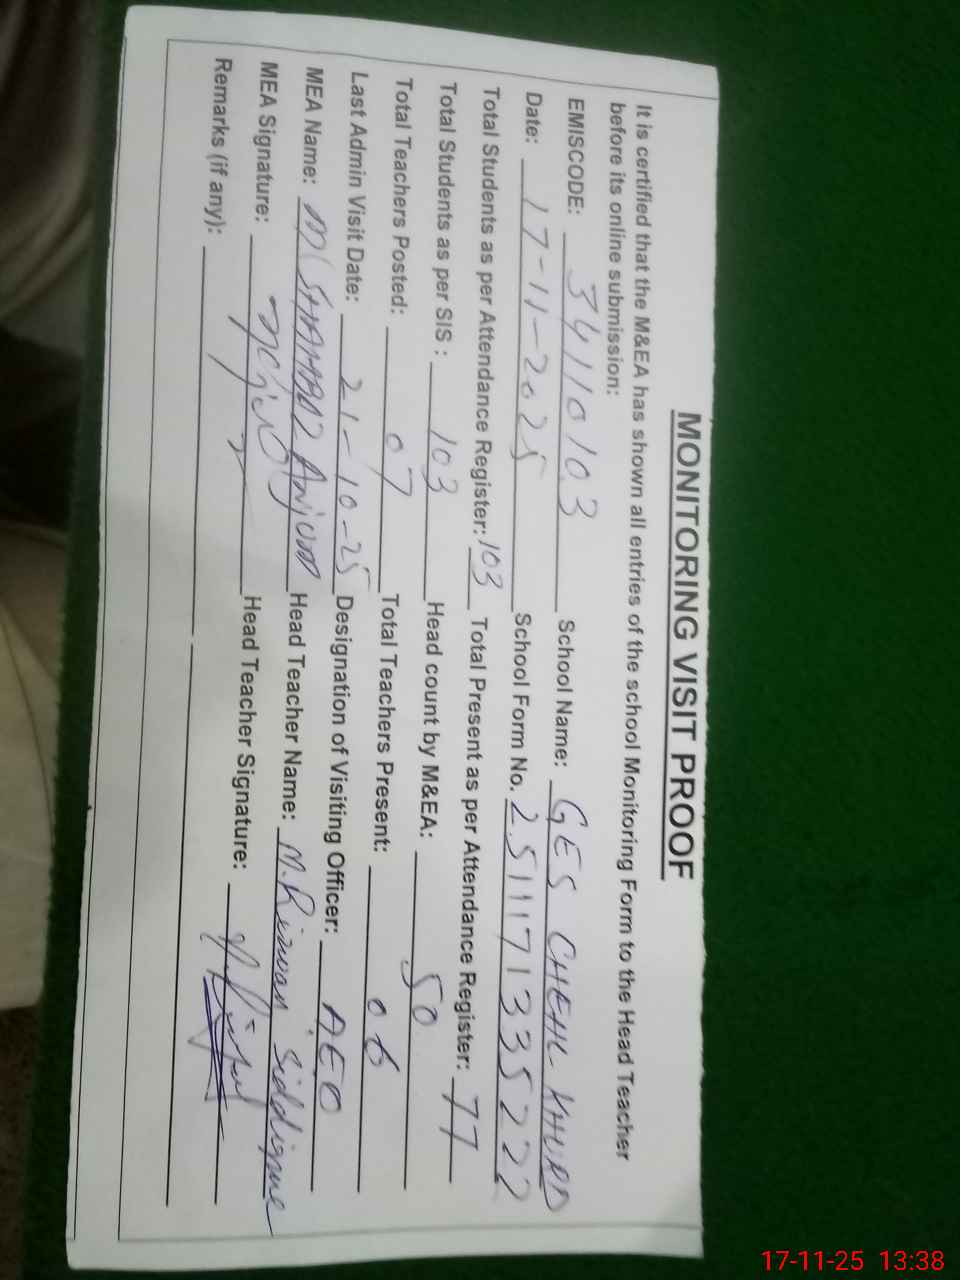 MONITORING VISIT PROOF
It is certified that the M&EA has shown all entries of the school Monitoring Form to the Head Teacher
before its online submission:
EMISCODE: 34110103 School Name: GES CHEHL KHURD
Date: 17-11-2025 School Form No. 251117133522​2
Total Students as per Attendance Register: 103 Total Present as per Attendance Register: 77
Total Students as per SIS: 103 Head count by M&EA: 50
Total Teachers Posted: 07 Total Teachers Present: 06
Last Admin Visit Date: 21-10-25 Designation of Visiting Officer: AEO
MEA Name: Anjum Head Teacher Name: M. Rizwan Siddique
MEA Signature: Head Teacher Signature:
Remarks (if any):
17-11-25 13:38